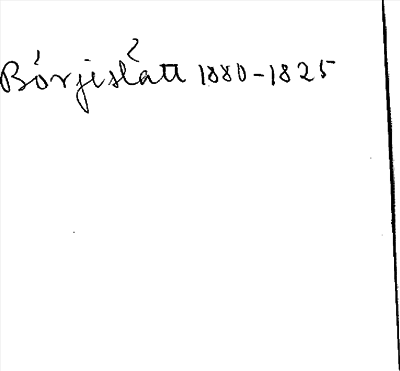 Börjislätt 1880-1825